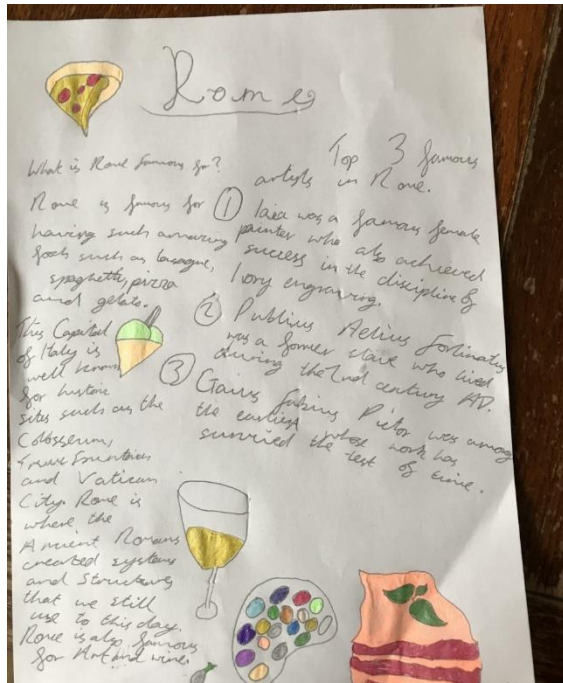 Rome
What is Rome famous for?
Rome is famous for
having such amazing
foods such as lasagne,
spaghetti, pizza
and gelato.
This Capital
of Italy is
well known
for historic
sites such as the
Colosseum,
Trevi Fountain
and Vatican
City. Rome is
where the
Ancient Romans
created systems
and structures
that we still
use to this day.
Rome is also famous
for Art and wine.
Top 3 famous
artists in Rome.
① Iaia was a famous female
painter who also achieved
success in the discipline of
Ivory engraving.
② Publius Aelius Fortunatus
was a former slave who lived
during the 2nd century AD.
③ Gaius Fabius Pictor was among
the earliest whose work has
survived the test of time.